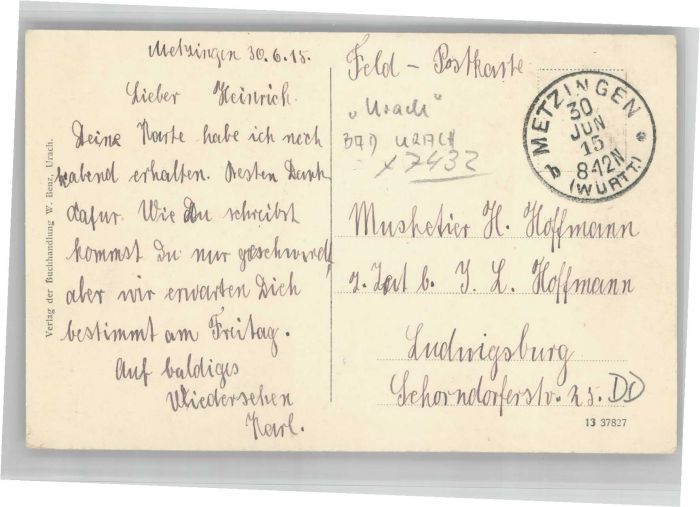 Metzingen 30.6.15.
Lieber Heinrich.
Deine Karte habe ich noch
abend erhalten. Besten Dank
dafur. Wie Du schreibst
kommst Du nur geschwind,
aber wir erwarten Dich
bestimmt am Freitag.
Auf baldiges
Wiedersehen
Karl.
Verlag der Buchhandlung W. Benz, Urach.
Feld - Postkarte
"Urach"
BAD URACH
x 7432
METZINGEN
30
JUN
15
8-12N
b
*
(WÜRTT.)
Musketier H. Hoffmann
z. Zeit b. J. L. Hoffmann
Ludwigsburg
Schorndorferstr. 25.
DD
13 37827